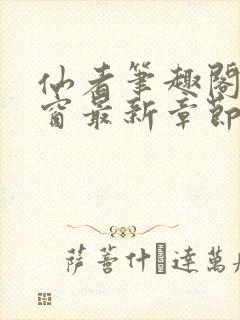 仙者筆趣閣
窗最新章節
薩菩什達萬